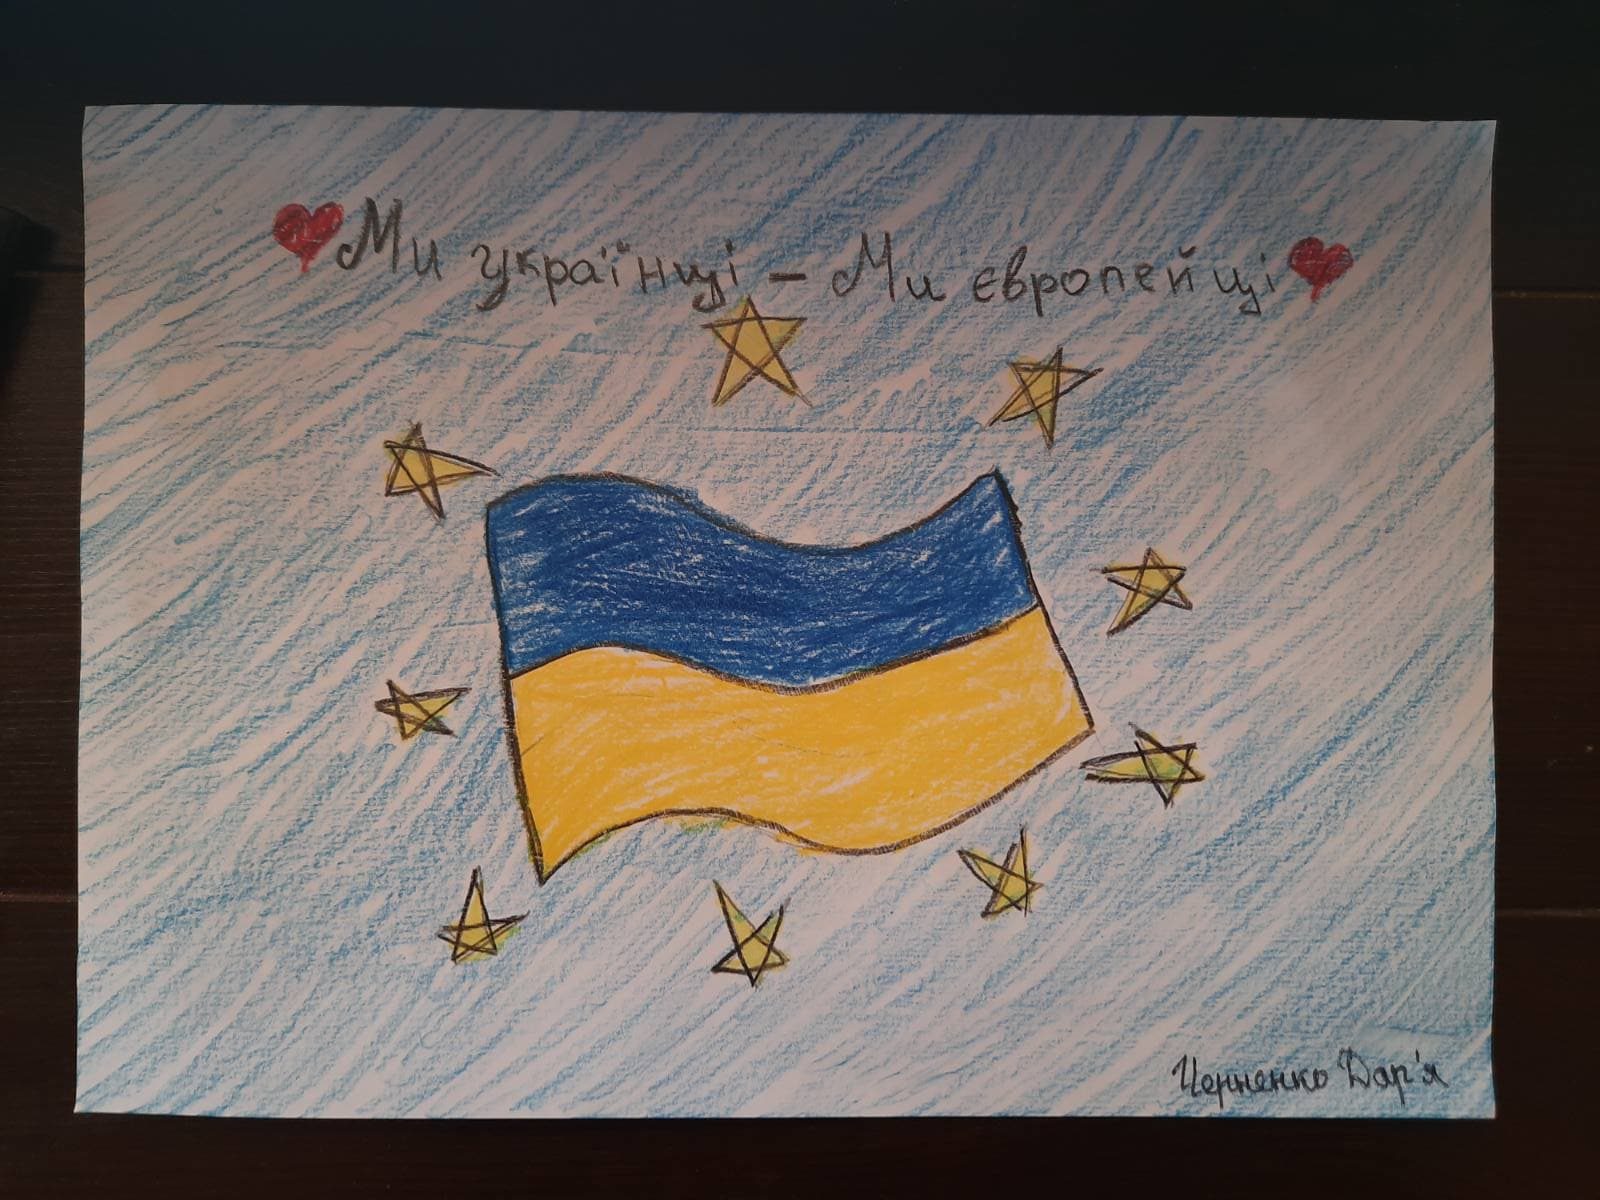 Ми українці - Ми європейці
Черненко Дар'я